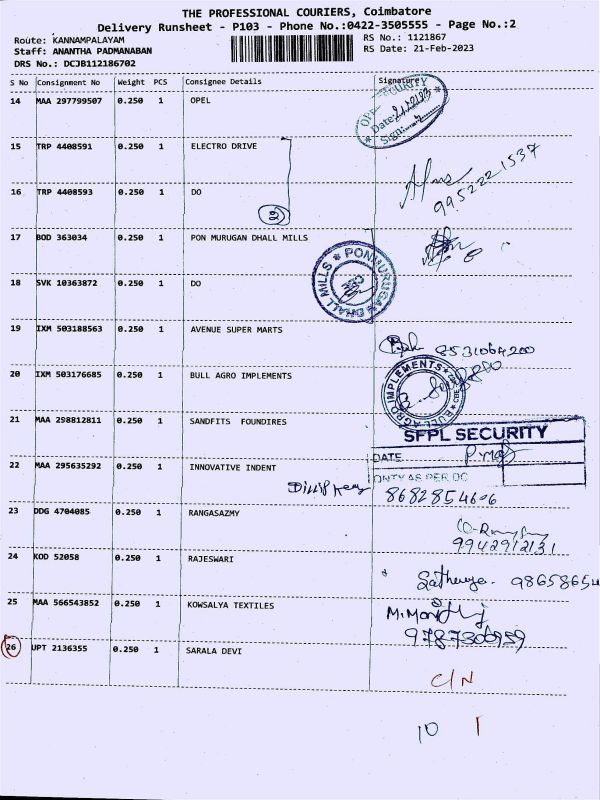 THE PROFESSIONAL COURIERS, Coimbatore
Delivery Runsheet - P103 - Phone No.:0422-3505555 - Page No.:2
Route: KANNAMPALAYAM
RS No.: 1121867
Staff: ANANTHA PADMANABAN
RS Date: 21-Feb-2023
DRS No.: DCJB112186702
S No Consignment No Weight PCS Consignee Details Signature
14 MAA 297799507 0.250 1 OPEL
SECURITY
Date:
Sign:
15 TRP 4408591 0.250 1 ELECTRO DRIVE
9952221537
16 TRP 4408593 0.250 1 DO
22
17 BOD 363034 0.250 1 PON MURUGAN DHALL MILLS
PONMURUGAN DHALL MILLS
CBE
18 SVK 10363872 0.250 1 DO
19 IXM 503188563 0.250 1 AVENUE SUPER MARTS
8531064200
20 IXM 503176685 0.250 1 BULL AGRO IMPLEMENTS
BULL AGRO IMPLEMENTS
21 MAA 298812811 0.250 1 SANDFITS FOUNDIRES
SFPL SECURITY
DATE
22 MAA 295635292 0.250 1 INNOVATIVE INDENT
QNTY AS PER DC
8682854606
23 DDG 4704085 0.250 1 RANGASAZMY
9942912131
24 KOD 52058 0.250 1 RAJESWARI
Satheeya. 98658654
25 MAA 566543852 0.250 1 KOWSALYA TEXTILES
9787306959
26 UPT 2136355 0.250 1 SARALA DEVI
C/N
10 1